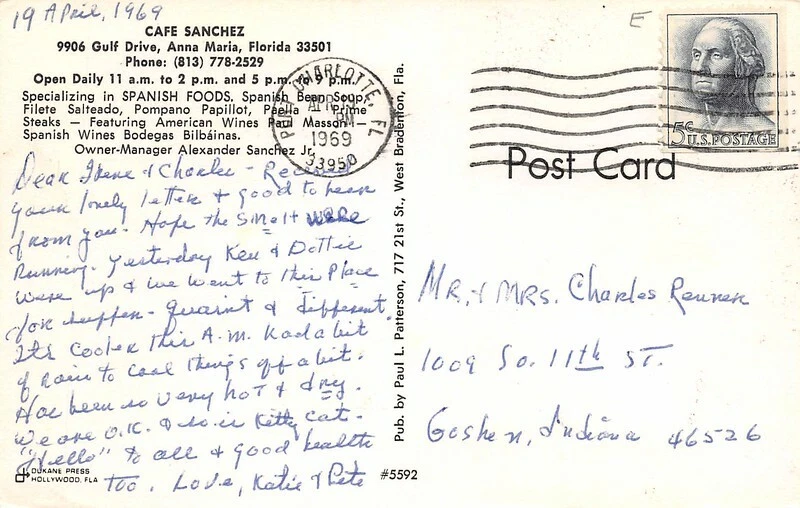 19 April, 1969
CAFE SANCHEZ
9906 Gulf Drive, Anna Maria, Florida 33501
Phone: (813) 778-2529
Open Daily 11 a.m. to 2 p.m. and 5 p.m. to 9 p.m.
Specializing in SPANISH FOODS, Spanish Bean Soup,
Filete Salteado, Pompano Papillot, Paella - Prime
Steaks — Featuring American Wines Paul Masson —
Spanish Wines Bodegas Bilbáinas.
Owner-Manager Alexander Sanchez Jr.
Dear Irene & Charles - Received
your lovely letter & good to hear
from you. Hope the Smelt were
Running. Yesterday Ken & Dottie
were up & we went to this Place
for supper - Quaint & different.
It's cooler this A.M. Had a bit
of rain to cool things off a bit.
Has been so very hot & dry.
We are O.K. & so is Kitty cat.
"Hello" to all & good health
too. Love, Katie & Pete
DUKANE PRESS
HOLLYWOOD, FLA
#5592
Pub. by Paul L. Patterson, 717 21st St., West Bradenton, Fla.
PORT CHARLOTTE, FL
APR 19
PM
1969
33950
E
5¢ U.S. POSTAGE
Post Card
Mr. & Mrs. Charles Renner
1009 So. 11th St.
Goshen, Indiana 46526